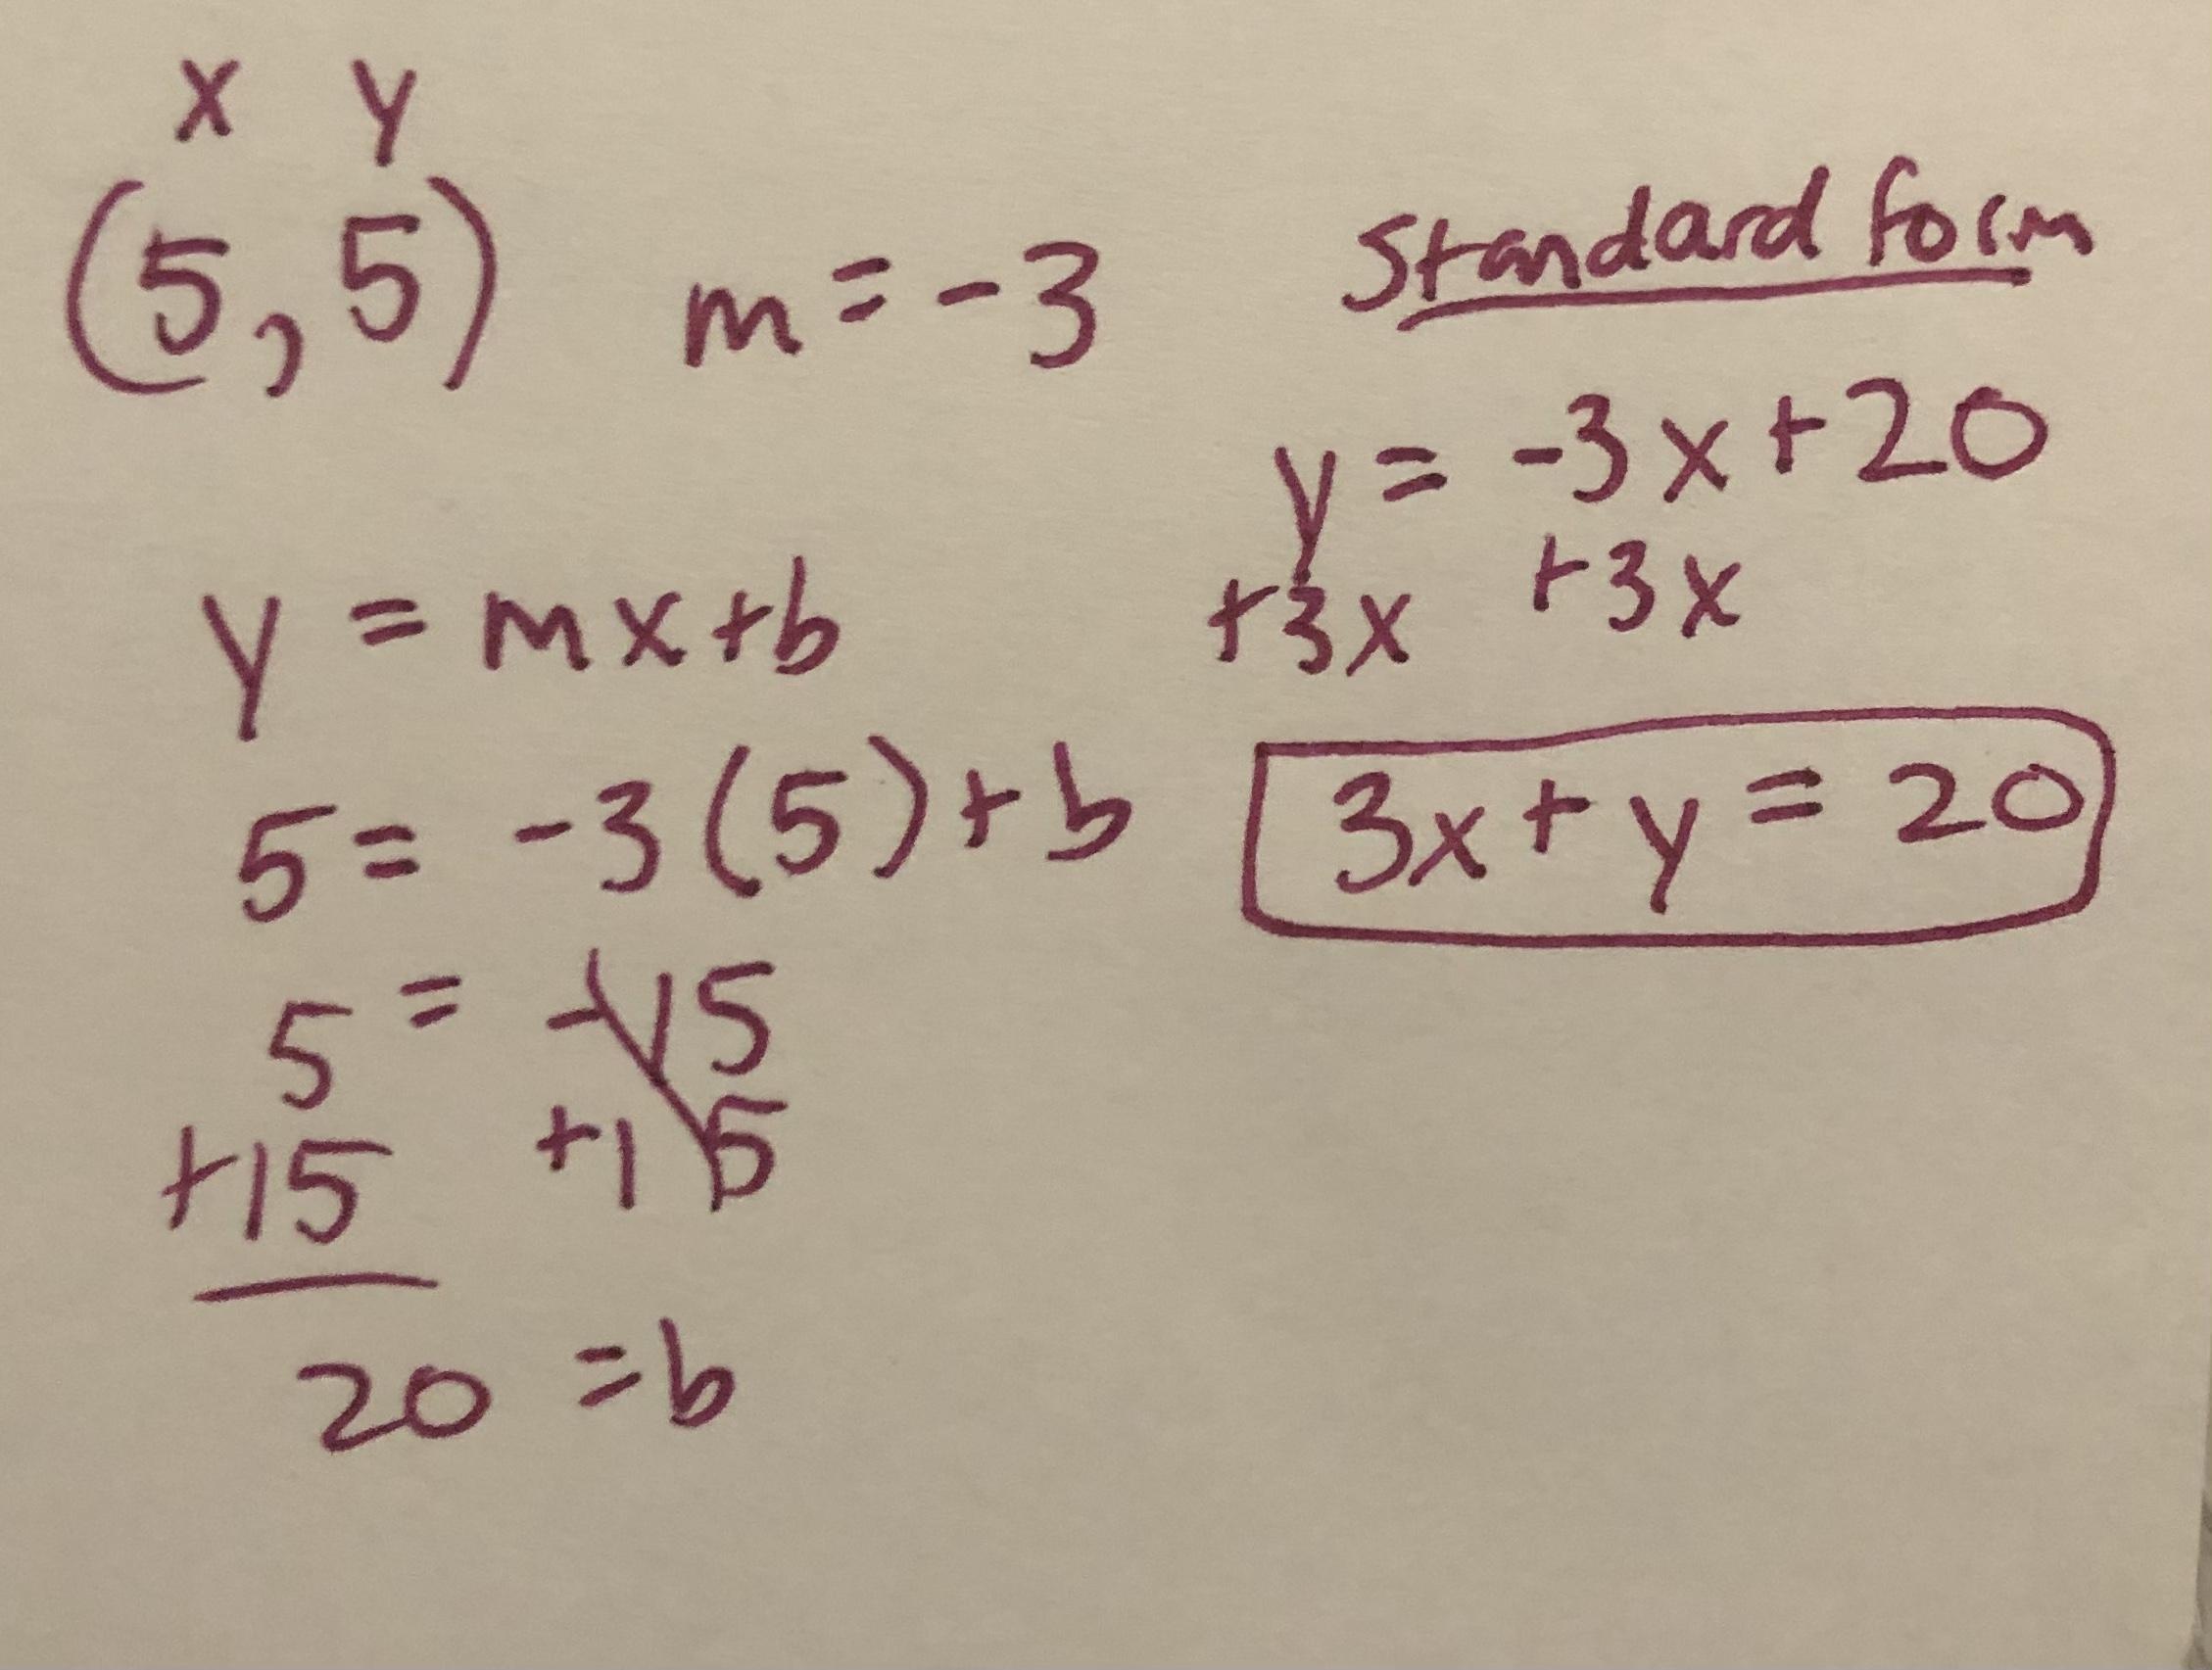 x y
(5,5) m = -3
y = mx+b
5 = -3(5)+b
5 = -15
+15 +15
20 = b
Standard form
y = -3x+20
+3x +3x
3x+y = 20